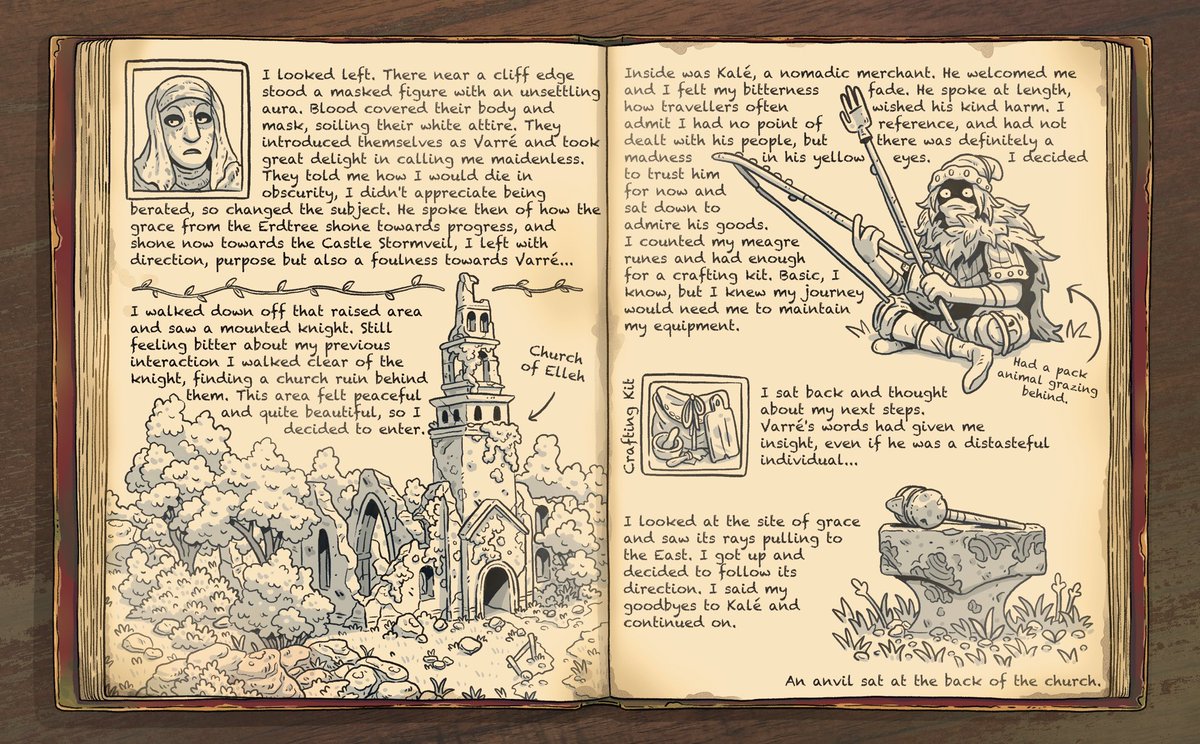 I looked left. There near a cliff edge
stood a masked figure with an unsettling
aura. Blood covered their body and
mask, soiling their white attire. They
introduced themselves as Varré and took
great delight in calling me maidenless.
They told me how I would die in
obscurity, I didn't appreciate being
berated, so changed the subject. He spoke then of how the
grace from the Erdtree shone towards progress, and
shone now towards the Castle Stormveil, I left with
direction, purpose but also a foulness towards Varré...
I walked down off that raised area
and saw a mounted knight. Still
feeling bitter about my previous
interaction I walked clear of the
knight, finding a church ruin behind
them. This area felt peaceful
and quite beautiful, so I
decided to enter.
Church
of Elleh
Inside was Kalé, a nomadic merchant. He welcomed me
and I felt my bitterness fade. He spoke at length,
how travellers often wished his kind harm. I
admit I had no point of reference, and had not
dealt with his people, but there was definitely a
madness in his yellow eyes. I decided
to trust him
for now and
sat down to
admire his goods.
I counted my meagre
runes and had enough
for a crafting kit. Basic, I
know, but I knew my journey
would need me to maintain
my equipment.
Had a pack
animal grazing
behind.
Crafting Kit
I sat back and thought
about my next steps.
Varré's words had given me
insight, even if he was a distasteful
individual...
I looked at the site of grace
and saw its rays pulling to
the East. I got up and
decided to follow its
direction. I said my
goodbyes to Kalé and
continued on.
An anvil sat at the back of the church.